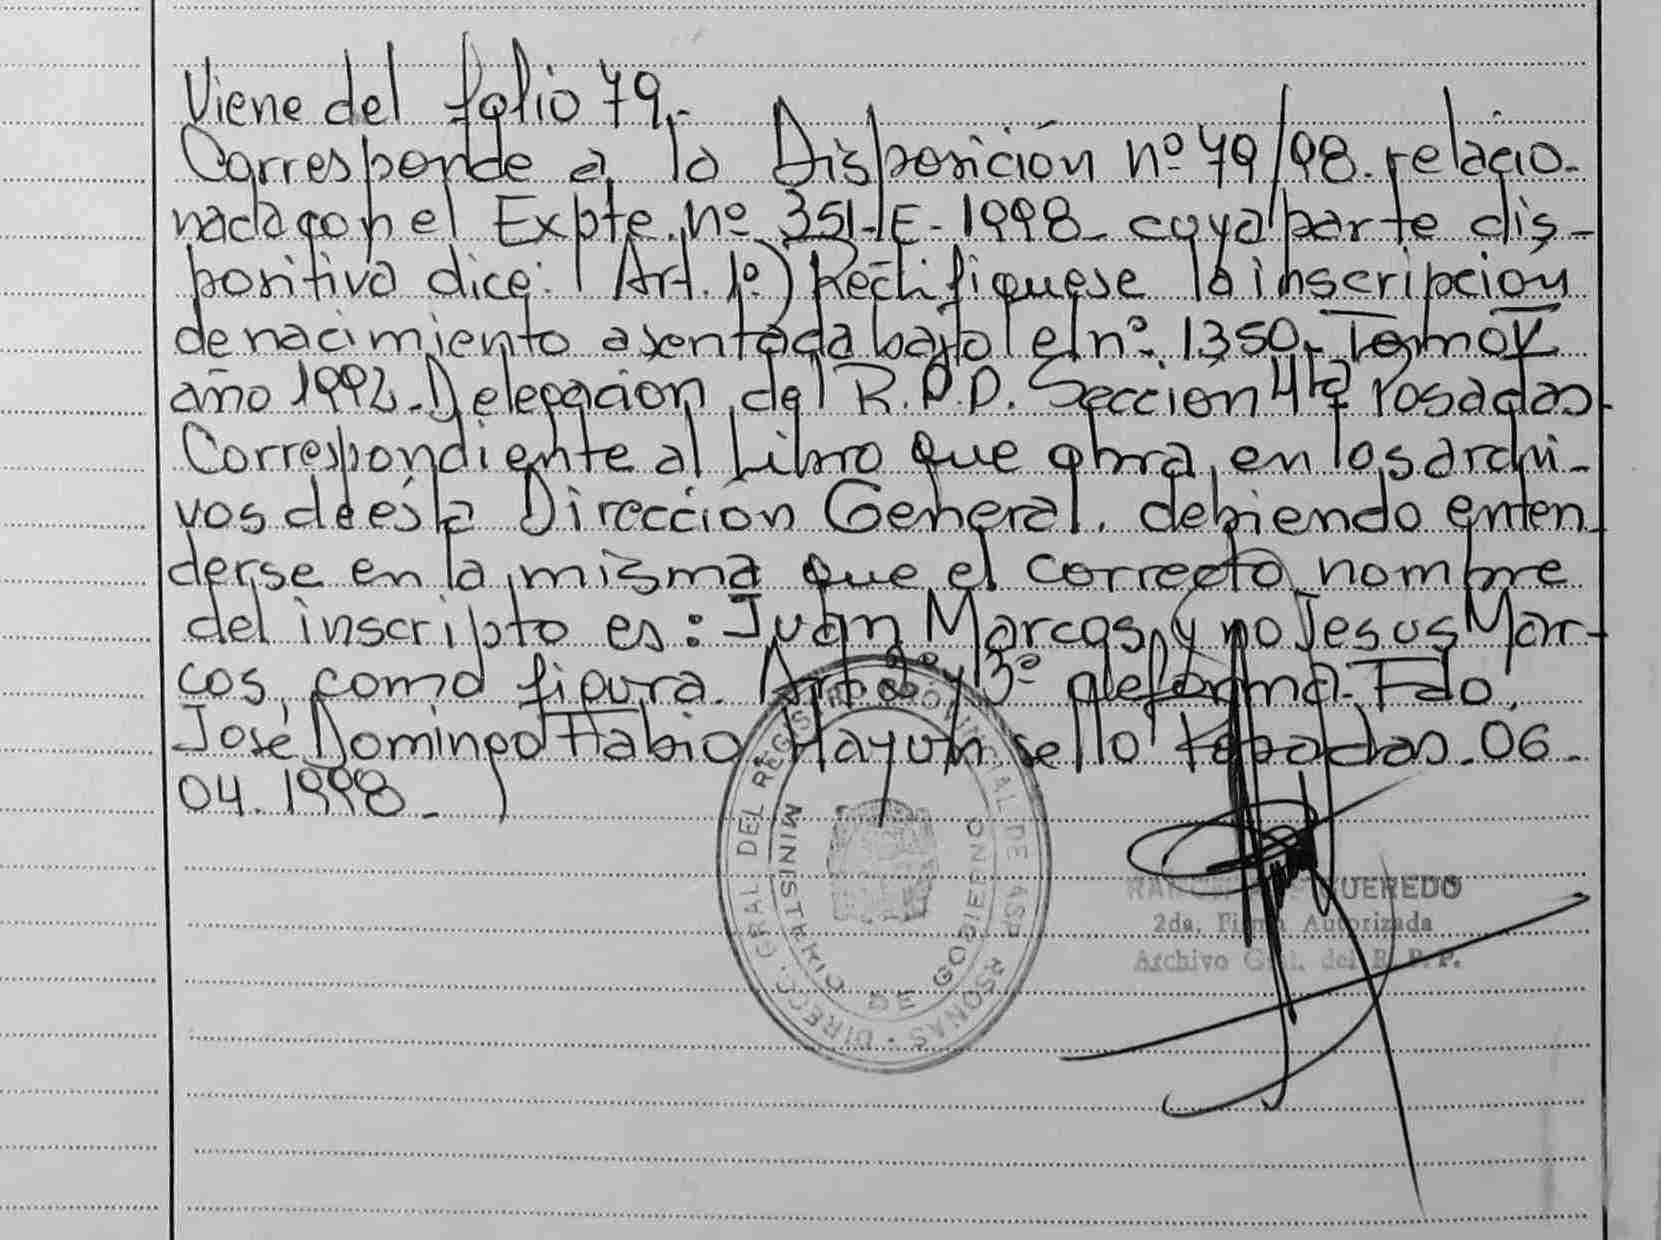 Viene del folio 79.-
Corresponde a la Disposición nº 79/98. relacio-
nada con el Expte. nº 351-E-1998- cuya parte dis-
positiva dice: (Art. 1º) Rectifiquese la inscripción
de nacimiento asentada bajo el nº 1350. Tomo V
año 1992. Delegación del R.P.P. Sección 4ta Posadas.
Correspondiente al Libro que obra en los archi-
vos de ésta Dirección General, debiendo enten-
derse en la misma que el correcto nombre
del inscripto es: Juan Marcos y no Jesus Mar-
cos, como figura. Art 2º y 3º de forma. Fdo.
José Domingo Fabio sello Posadas. 06-
04. 1998-
DIRECC. GRAL DEL REGISTRO PROVINCIAL DE LAS PERSONAS
MINISTERIO DE GOBIERNO
2da. Firma Autorizada
Archivo Gral. del R. P. P.